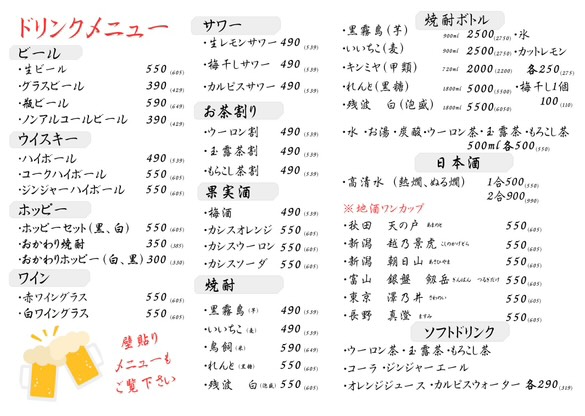 ドリンクメニュー
ビール
・生ビール 550(605)
・グラスビール 390(429)
・瓶ビール 590(649)
・ノンアルコールビール 390(429)
ウイスキー
・ハイボール 490(539)
・コークハイボール 550(605)
・ジンジャーハイボール 550(605)
ホッピー
・ホッピーセット(黒、白) 550(605)
・おかわり焼酎 350(385)
・おかわりホッピー(白、黒) 300(330)
ワイン
・赤ワイングラス 550(605)
・白ワイングラス 550(605)
壁貼り
メニューも
ご覧下さい
サワー
・生レモンサワー 490(539)
・梅干しサワー 490(539)
・カルピスサワー 490(539)
お茶割り
・ウーロン割 490(539)
・玉露割 490(539)
・もろこし茶割 490(539)
果実酒
・梅酒 490(539)
・カシスオレンジ 550(605)
・カシスウーロン 550(605)
・カシスソーダ 550(605)
焼酎
・黒霧島(芋) 490(539)
・いいちこ(麦) 490(539)
・鳥飼(米) 590(649)
・れんと(黒糖) 550(605)
・残波 白(泡盛) 550(605)
焼酎ボトル
・黒霧島(芋) 900ml 2500(2750)
・いいちこ(麦) 900ml 2500(2750)
・キンミヤ(甲類) 720ml 2000(2200)
・れんと(黒糖) 1800ml 5000(5500)
・残波 白(泡盛) 1800ml 5500(6050)
・氷
・カットレモン
各250(275)
・梅干し1個
100(110)
・水・お湯・炭酸・ウーロン茶・玉露茶・もろこし茶
500ml各500(550)
日本酒
・高清水(熱燗、ぬる燗) 1合500(550)
2合900(990)
※地酒ワンカップ
・秋田 天の戸 あまのと 550(605)
・新潟 越乃景虎 こしのかげとら 550(605)
・新潟 朝日山 あさひやま 550(605)
・富山 銀盤 剱岳 ぎんばん つるぎだけ 550(605)
・東京 澤乃井 さわのい 550(605)
・長野 真澄 ますみ 550(605)
ソフトドリンク
・ウーロン茶・玉露茶・もろこし茶
・コーラ・ジンジャーエール
・オレンジジュース・カルピスウォーター 各290(319)